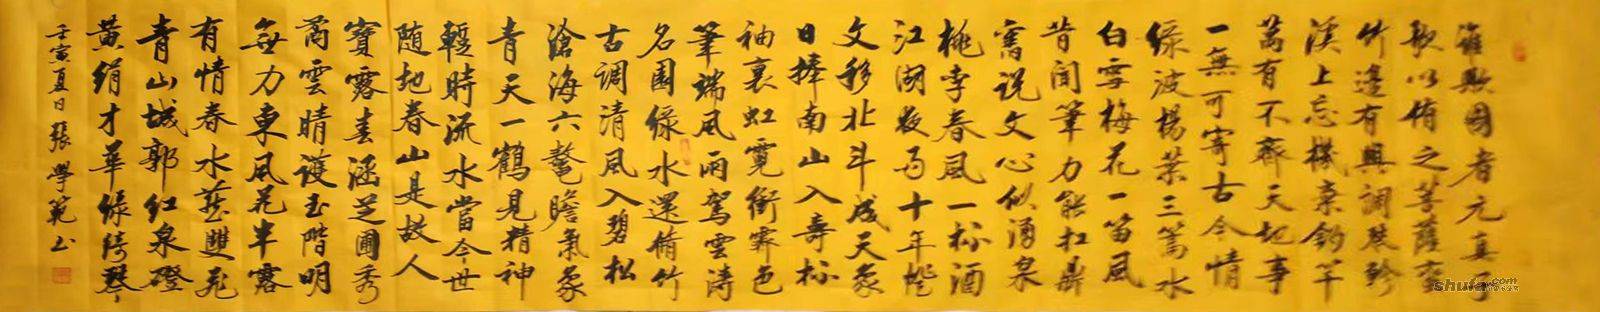 歌以侑之菩薩蠻
竹邊有興調琴軫
溪上忘機棄釣竿
萬有不齊天地事
一無可寄古今情
緑波楊葉三篙水
白雪梅花一笛風
昔聞筆力能扛鼎
舊說文心似湧泉
桃李春風一杯酒
江湖夜雨十年燈
文移北斗成天象
日捧南山入壽杯
袖裏虹霓衝霽色
筆端風雨駕雲濤
名園緑水還脩竹
古調清風入碧松
滄海六鼇瞻氣象
青天一鶴見精神
輕時流水當今世
随地春山是故人
寶露素涵芝圃秀
矞雲晴護玉階明
無力東風花半露
有情春水燕雙飛
青山城郭紅泉磴
黄絹才華緑綺琴
壬寅夏日張學範书
shufa.com